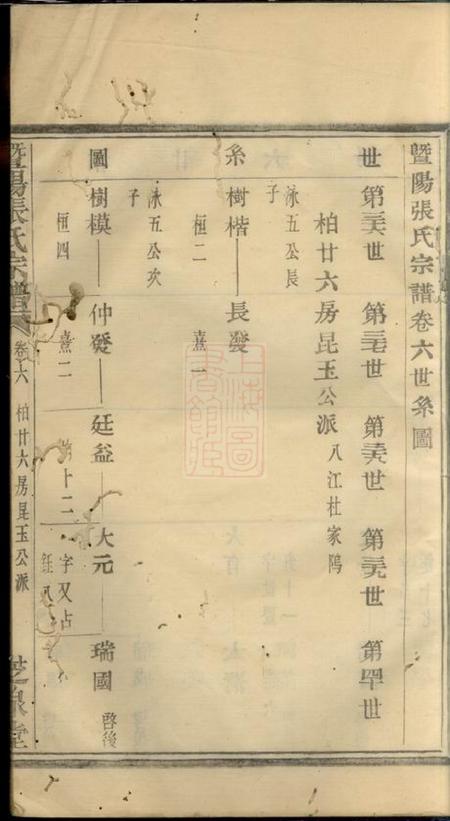 暨陽張氏宗譜卷六世系圖
世 第三十六世 第三十七世 第三十八世 第三十九世 第四十世
柏廿六房昆玉公派 八江杜家隝
泳五公長
子
系 樹楷 長發
桓二 熹一
泳五公次
子
圖 樹模 仲發 廷益 大元 瑞國 啓後
桓四 熹二 十二 字又占
鈺八
暨陽張氏宗譜 卷六 柏廿六房昆玉公派 芝泉堂
上海圖書館藏